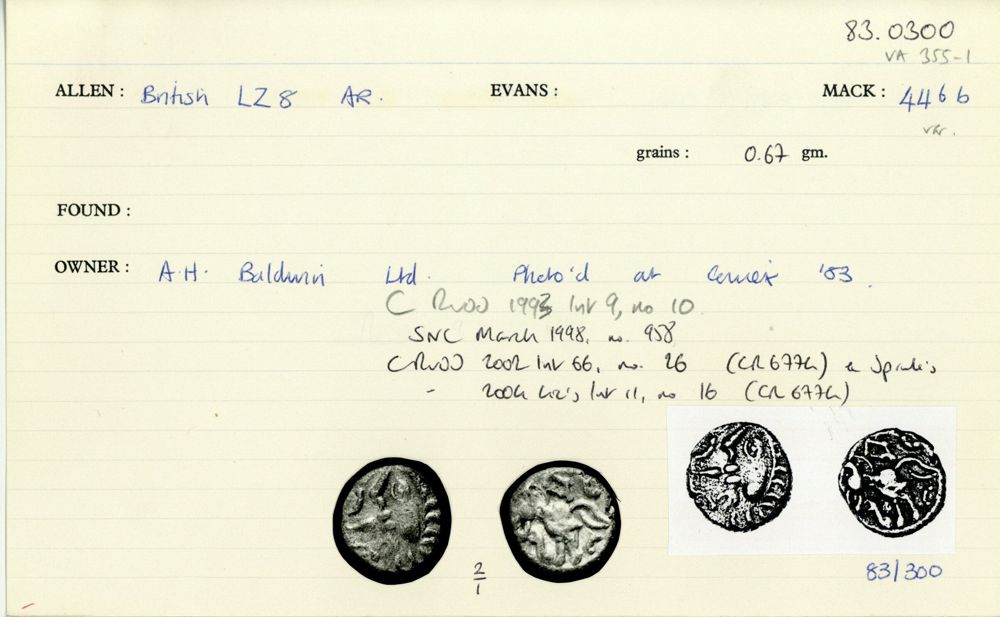 83.0300
VA 355-1
ALLEN : British LZ8 AR. EVANS : MACK : 446b
var.
grains : 0.67 gm.
FOUND :
OWNER : A.H. Baldwin Ltd. Photo'd at '83.
C Rudd 1993 lut 9, no 10
SNC March 1998, no. 958
C Rudd 2002 lut 66, no. 26 (CR677h) ex
- 2004 11, no 16 (CR677h)
2/1
83/300